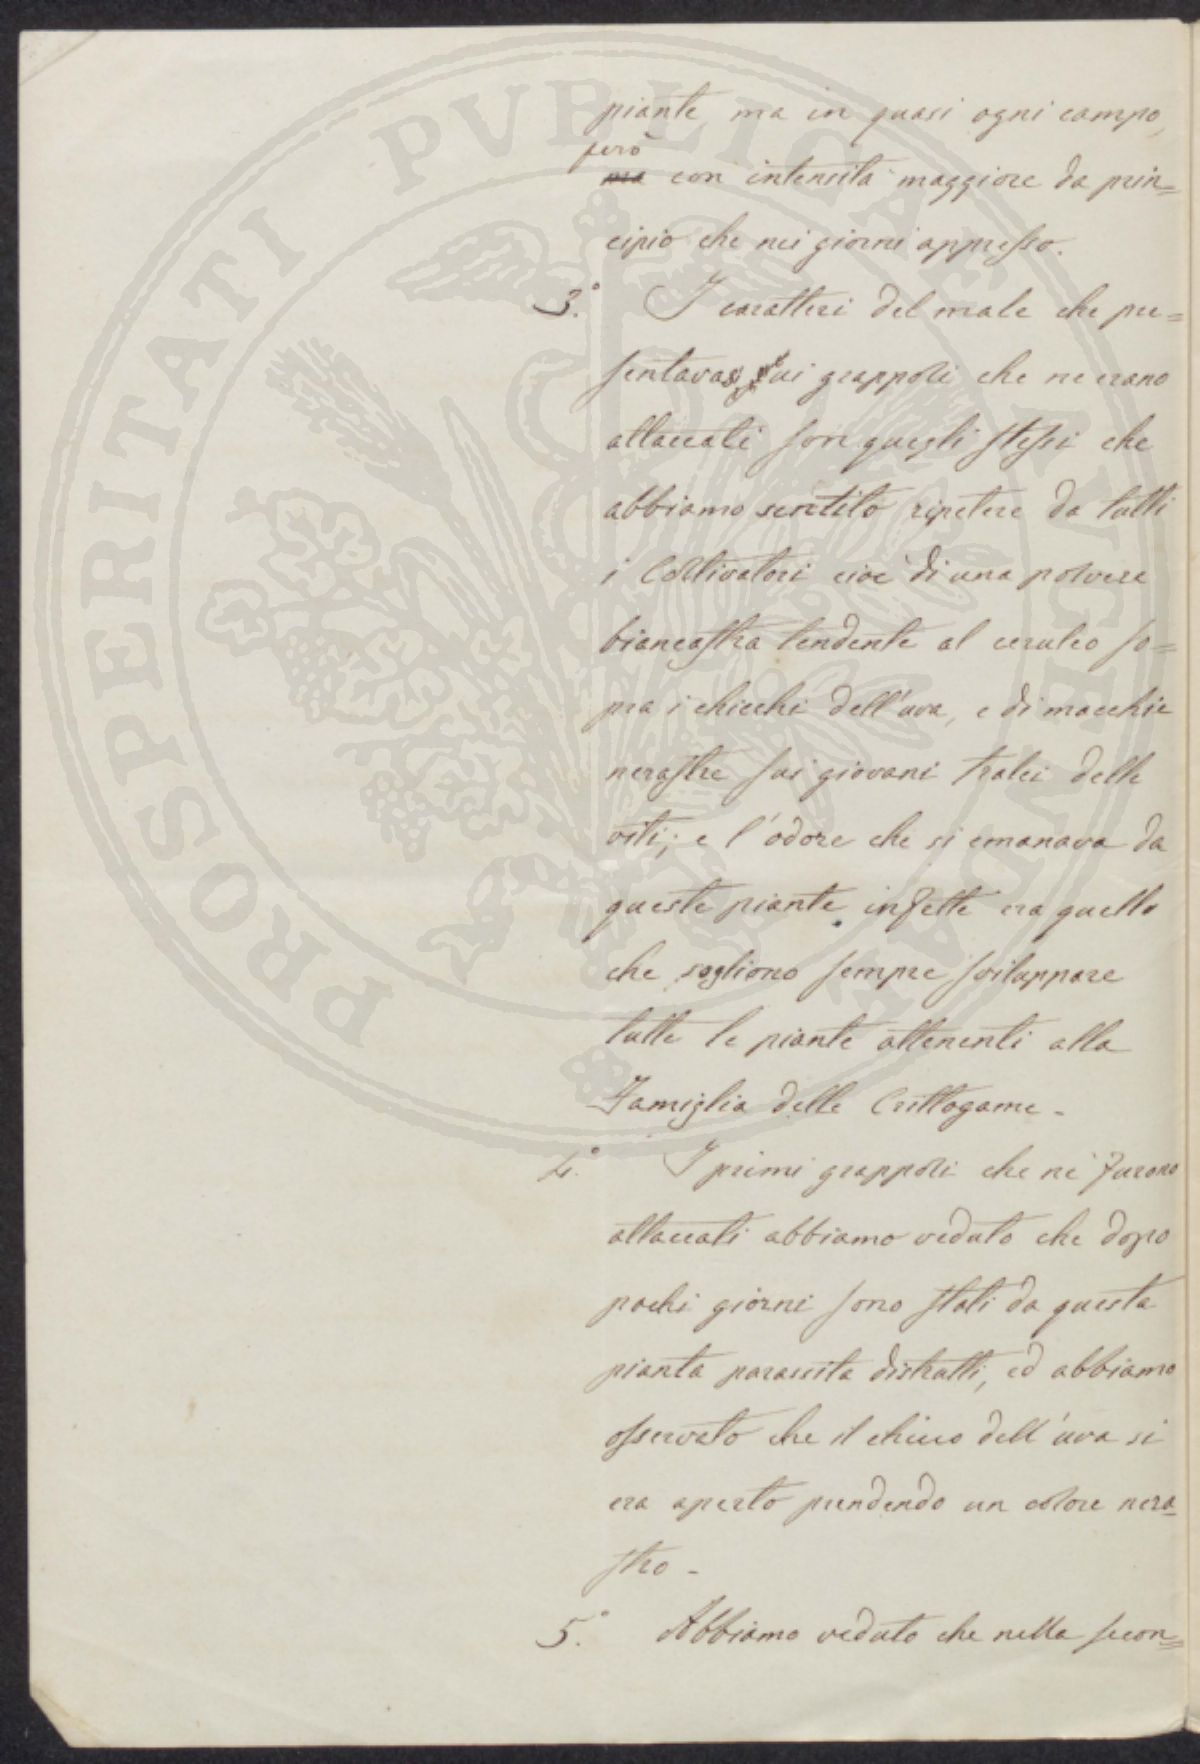 piante, ma in quasi ogni campo,
però
ma con intensità maggiore da prin=
cipio che nei giorni appresso.
3.° I caratteri del male che pre=
sentava sui grappoli che ne erano
attaccati son quegli stessi che
abbiamo sentito ripetere da tutti
i Coltivatori cioè di una polvere
biancastra tendente al ceruleo so=
pra i chicchi dell'uva, e di macchie
nerastre sui giovani tralci delle
viti; e l'odore che si emanava da
queste piante infette era quello
che sogliono sempre sviluppare
tutte le piante attenenti alla
Famiglia delle Crittogame -
4.° I primi grappoli che ne furono
attaccati abbiamo veduto che dopo
pochi giorni sono stati da questa
pianta parassita distrutti, ed abbiamo
osservato che il chicco dell'uva si
era aperto prendendo un colore nera=
stro -
5.° Abbiamo veduto che nella secon=
PROSPERITATI PVBLICAE AVGENDAE